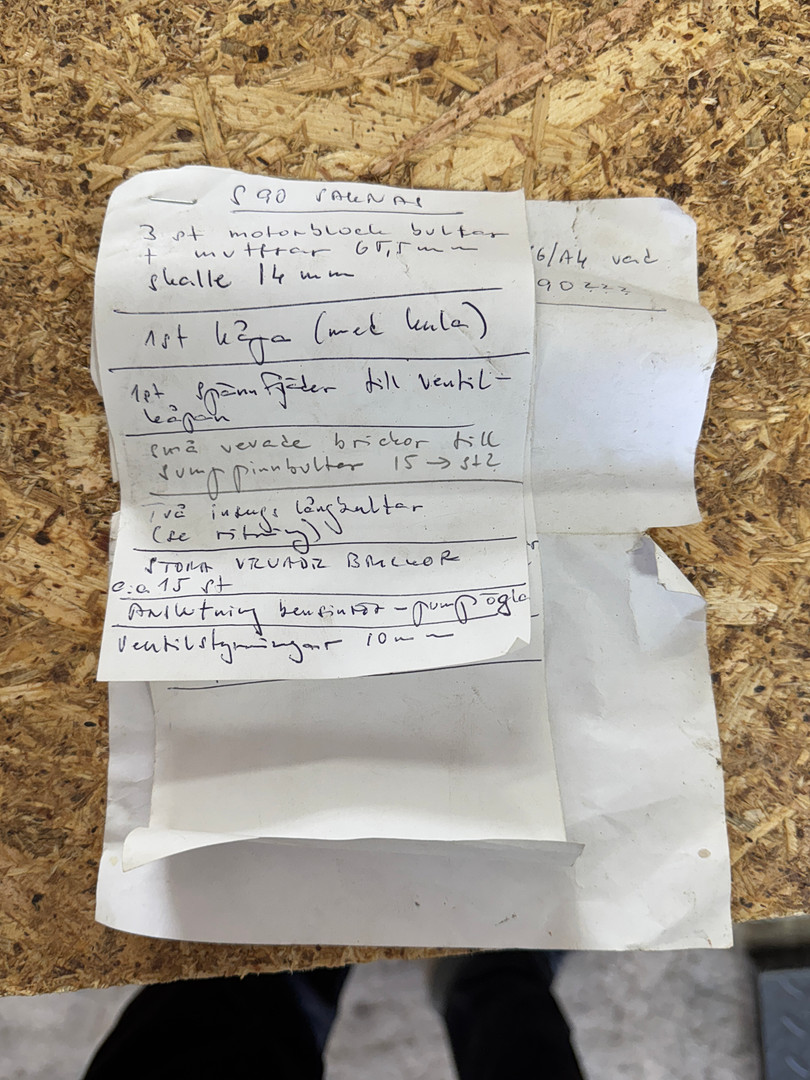 S 90 SAKNAS
3 st motorblock bultar
+ muttrar 65,5 mm
skalle 14 mm
1st kåpa (med kula)
1st spännfjäder till ventil-
kåpan
små vevade brickor till
sumppinnbultar 15 → st?
två insugs långbultar
(se ritning)
STORA VEVADE BRICKOR
c:a 15 st
Anslutning bensinrör - pumpögla
Ventilstyrningar 10 mm
6/A4 vad
90 ???